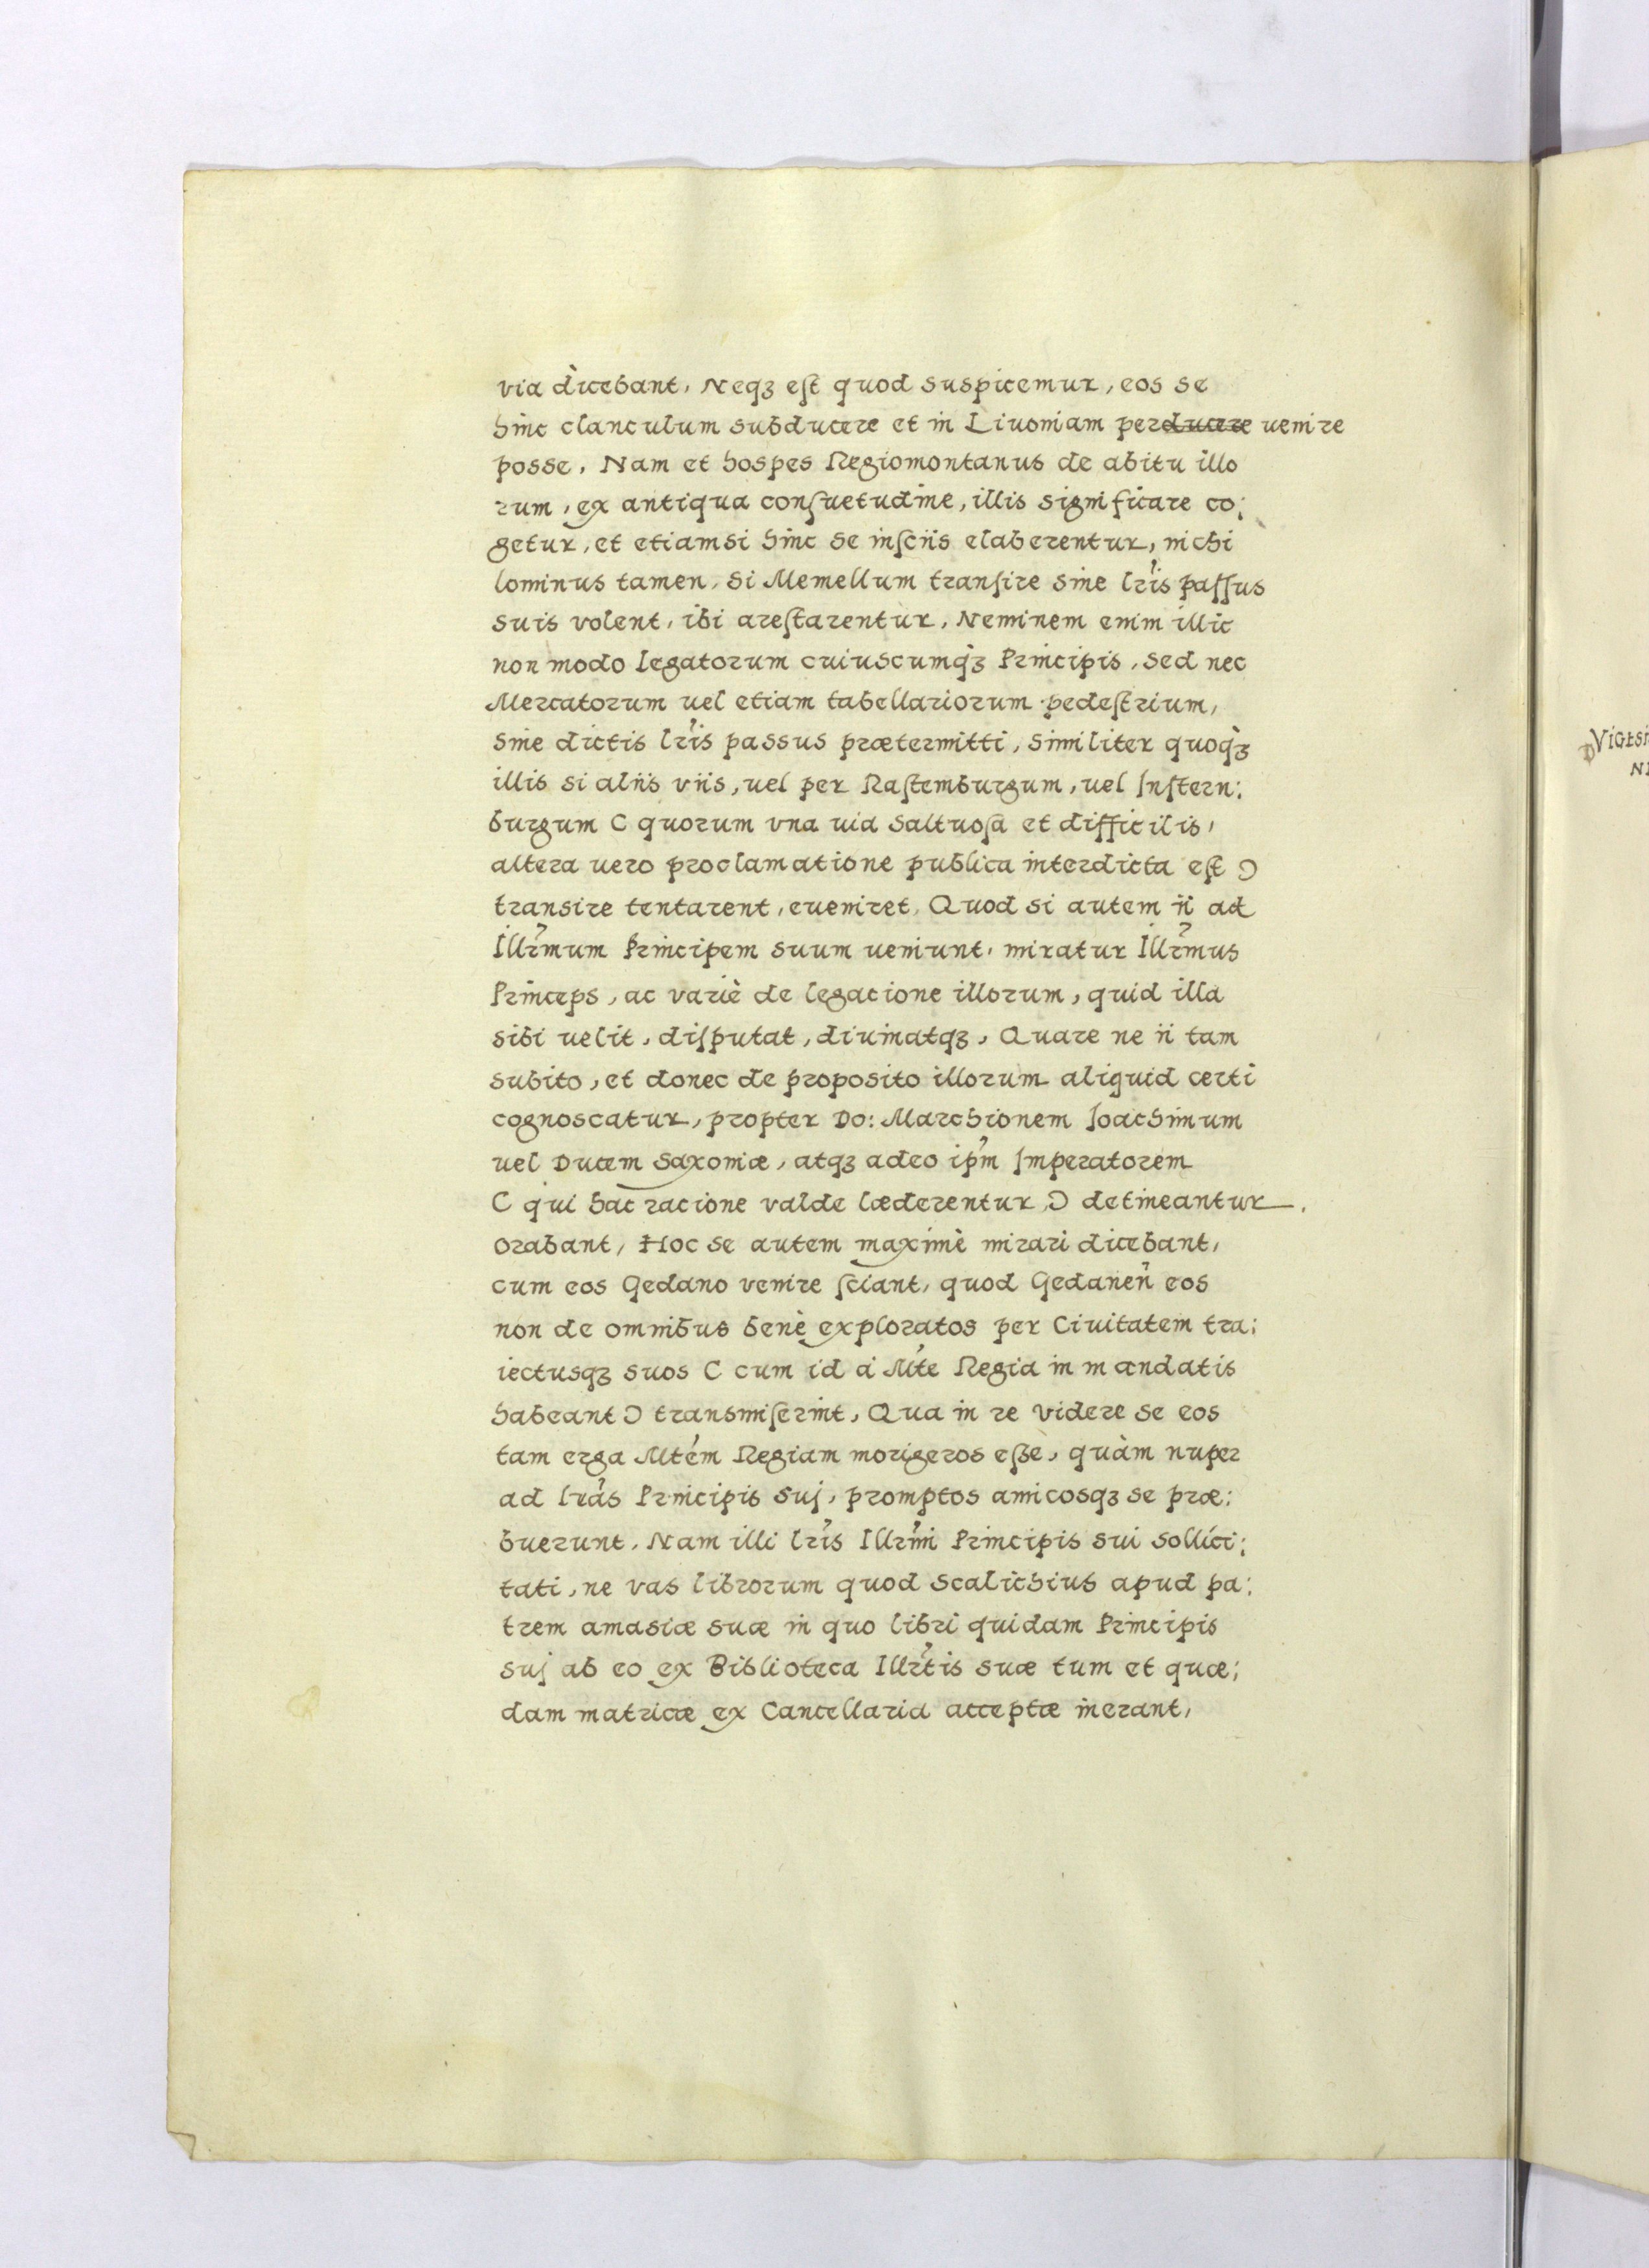 via dicebant, Neqꝫ eſt quod suspicemur, eos se
hinc clanculum subducere et in Liuoniam perducere uenire
posse, Nam et hospes Regiomontanus de abitu illo
rum, ex antiqua conſuetudine, illis significare co;
getur, et etiamsi hinc se inſciis elaberentur, nichi
lominus tamen, si Memellum tranſire sine lr̃is paſſus
suis volent, ibi areſtarentur, Neminem enim illic
non modo legatorum cuiuscumqꝫ Principis, sed nec
Mercatorum uel etiam tabellariorum pedeſtrium,
sine dictis lr̃is passus prætermitti, Similiter quoqꝫ
illis si aliis viis, uel per Raſtemburgum, uel Inſtern:
burgum ( quorum vna uia saltuoſa et difficilis,
altera uero proclamatione publica interdicta eſt )
transire tentarent, eueniret, Quod si autem ii ad
Illr̃mum Principem suum ueniunt, miratur Illr̃mus
Princeps, ac variè de legacione illorum, quid illa
sibi uelit, diſputat, diuinatqꝫ, Quare ne ii tam
subito, et donec de proposito illorum aliquid certi
cognoscatur, propter Do: Marchionem Joachimum
uel Ducem Saxoniæ, atqꝫ adeo ip̃m Imperatorem
( qui hac racione valde læderentur, ) detineantur.
orabant, Hoc se autem maximè mirari dicebant,
cum eos Gedano venire ſciant, quod Gedaneñ eos
non de omnibus benè exploratos per Ciuitatem tra:
iectusqꝫ suos ( cum id à Mt̃e Regia in mandatis
habeant ) transmiſerint, Qua in re videre se eos
tam erga Mtẽm Regiam morigeros eſse, quàm nuper
ad lr̃as Principis suj, promptos amicosqꝫ se præ:
buerunt, Nam illi lr̃is Illr̃mi Principis sui sollici:
tati, ne vas librorum quod Scalichius apud pa:
trem amasiæ suæ in quo libri quidam Principis
suj ab eo ex Biblioteca Illr̃tis suæ tum et quæ;
dam matricæ ex Cancellaria acceptæ inerant,